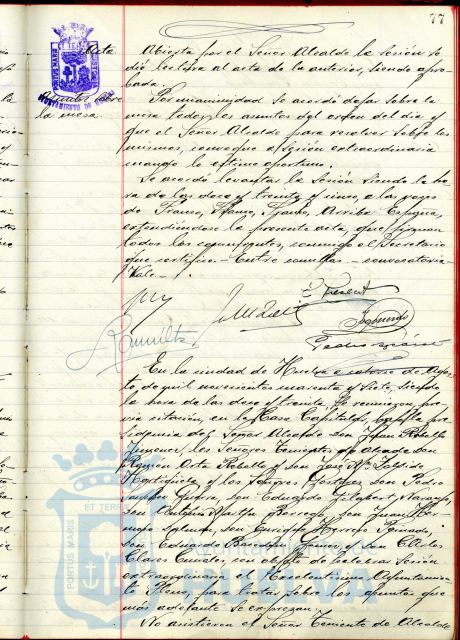 77
Acta
Abierta por el Señor Alcalde la sesión se
dió lectura al acta de la anterior, siendo apro-
bada.
Asuntos sobre
la mesa
Por unanimidad se acordó dejar sobre la
mesa todos los asuntos del orden del día y
que el Señor Alcalde para resolver sobre los
mismos, convoque a sesión extraordinaria
cuando lo estime oportuno.
Se acordó levantar la sesión siendo la ho-
ra de las doce y treinta y cinco, a las voces
de Franco, Franco, Franco, Arriba España,
extendiéndose la presente acta, que firman
todos los concurrentes, conmigo el Secretario
que certifico. - Entre comillas - convocatoria -
Vale. -
En la ciudad de Huelva a catorce de Agos-
to de mil novecientos cuarenta y siete, siendo
la hora de las doce y treinta, se reunieron, pre-
via citación, en la Casa Capitular, bajo la pre-
sidencia del Señor Alcalde don Juan Rebollo
Jimenez, los Señores Tenientes de Alcalde don
Ramón Orta Rebollo y don José Mª
y los Señores Gestores don Pedro
Guerra, don Eduardo Naranjo,
don Antonio Martín Borrego, don Juan
don Enrique Herrero
don don Carlos
con objeto de celebrar sesión
extraordinaria el Excelentísimo Ayuntamien-
to Pleno, para tratar sobre los asuntos que
más adelante se expresan.
No asistieron el Señor Teniente de Alcalde
AYUNTAMIENTO DE HUELVA
PORTUS MARIS ET TERRAE
Ayuntamiento de
HUELVA